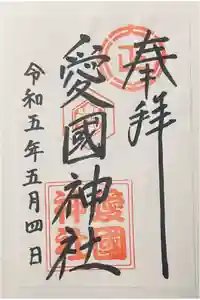 奉拝
愛國神社
令和五年五月四日
愛國
神社